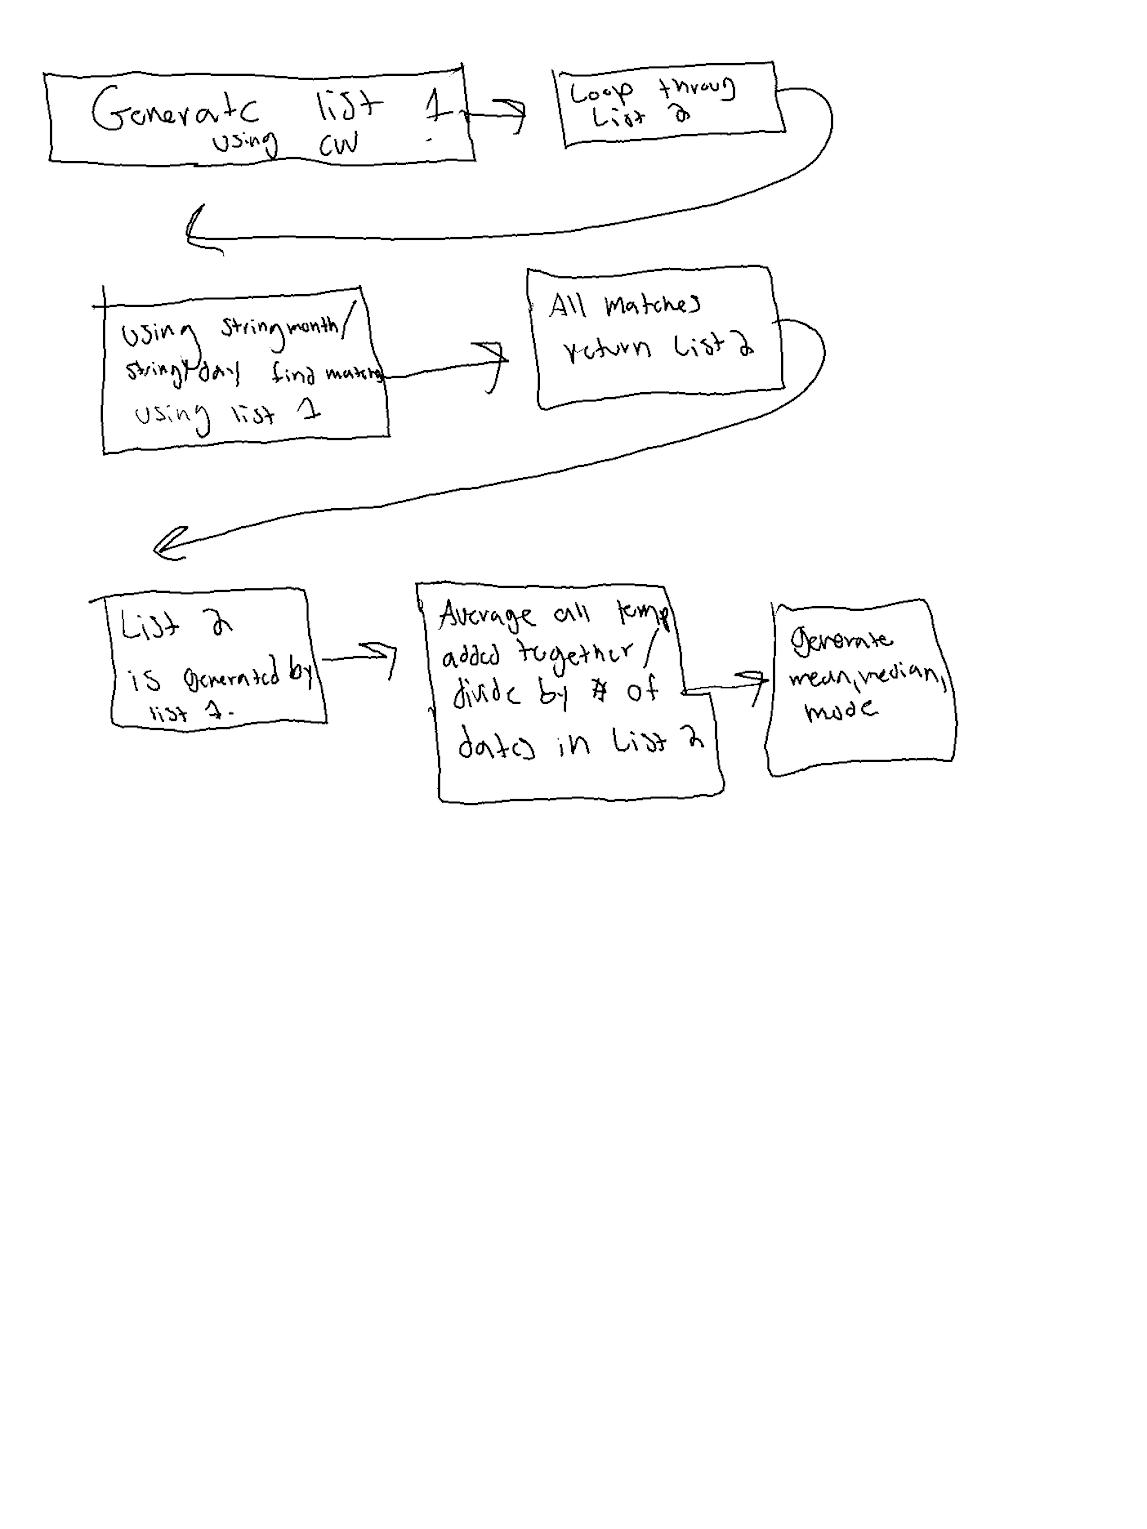 Generate list 1
using CW
Loop throug
List 2
using stringmonth/
string day find matches
using list 1
All matches
return List 2
List 2
is generated by
list 1.
Average all temp
added together/
divide by # of
dates in List 2
generate
mean, median,
mode